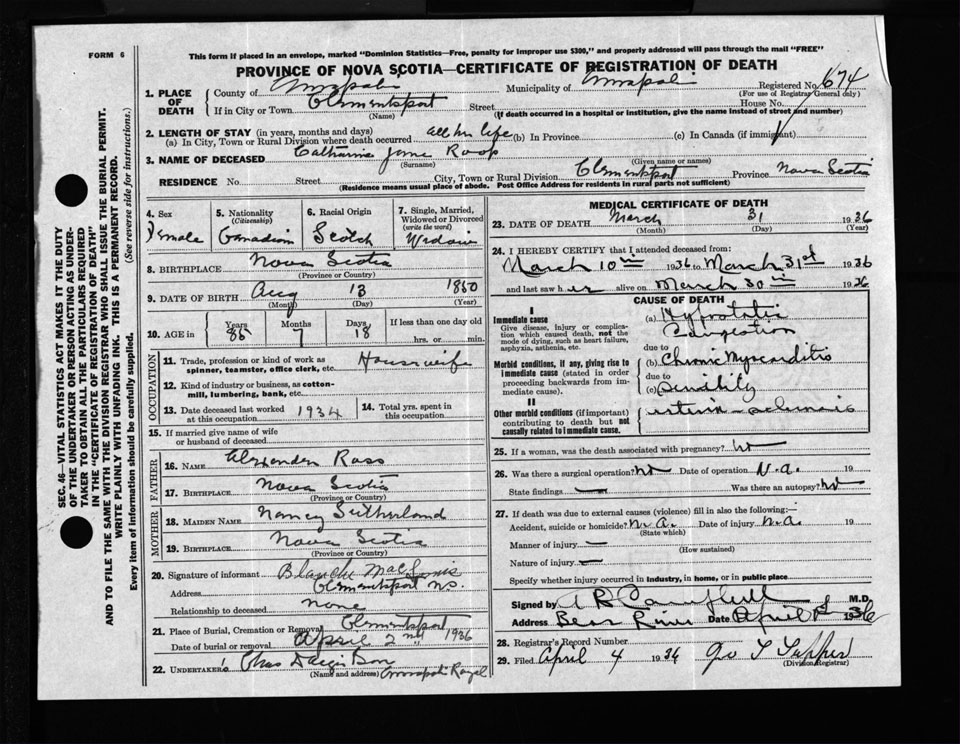 FORM 6
This form if placed in an envelope, marked "Dominion Statistics—Free, penalty for improper use $300," and properly addressed will pass through the mail "FREE"
PROVINCE OF NOVA SCOTIA—CERTIFICATE OF REGISTRATION OF DEATH
SEC. 46—VITAL STATISTICS ACT MAKES IT THE DUTY
OF THE UNDERTAKER OR PERSON ACTING AS UNDER-
TAKER TO OBTAIN ALL THE PARTICULARS REQUIRED
IN THE "CERTIFICATE OF REGISTRATION OF DEATH"
AND TO FILE THE SAME WITH THE DIVISION REGISTRAR WHO SHALL ISSUE THE BURIAL PERMIT.
WRITE PLAINLY WITH UNFADING INK. THIS IS A PERMANENT RECORD.
Every item of information should be carefully supplied. (See reverse side for instructions.)
1. PLACE OF DEATH County of Annapolis Municipality of Annapolis Registered No. 674
(For use of Registrar General only)
If in City or Town Clementsport Street House No.
(Name) (If death occurred in a hospital or institution, give the name instead of street and number)
2. LENGTH OF STAY (in years, months and days)
(a) In City, Town or Rural Division where death occurred all her life (b) In Province (c) In Canada (if immigrant)
3. NAME OF DECEASED Catharine Jane Roop
(Surname) (Given name or names)
RESIDENCE No. Street City, Town or Rural Division Clementsport Province Nova Scotia
(Residence means usual place of abode. Post Office Address for residents in rural parts not sufficient)
4. Sex Female
5. Nationality (Citizenship) Canadian
6. Racial Origin Scotch
7. Single, Married, Widowed or Divorced (write the word) Widow
8. BIRTHPLACE Nova Scotia
(Province or Country)
9. DATE OF BIRTH Aug 13 1850
(Month) (Day) (Year)
10. AGE in Years 85 Months 7 Days 18 If less than one day old
hrs. or min.
OCCUPATION
11. Trade, profession or kind of work as spinner, teamster, office clerk, etc. Housewife
12. Kind of industry or business, as cotton-mill, lumbering, bank, etc.
13. Date deceased last worked at this occupation 1934
14. Total yrs. spent in this occupation
15. If married give name of wife or husband of deceased
FATHER
16. NAME Alexander Ross
17. BIRTHPLACE Nova Scotia
(Province or Country)
MOTHER
18. MAIDEN NAME Nancy Sutherland
19. BIRTHPLACE Nova Scotia
(Province or Country)
20. Signature of informant Blanche
Address Clementsport N.S.
Relationship to deceased None
21. Place of Burial, Cremation or Removal Clementsport
Date of burial or removal April 2nd 1936
22. UNDERTAKER Chas
(Name and address) Annapolis Royal
MEDICAL CERTIFICATE OF DEATH
23. DATE OF DEATH March 31 1936
(Month) (Day) (Year)
24. I HEREBY CERTIFY that I attended deceased from:
March 10th 1936 to March 31st 1936
and last saw her alive on March 30th 1936
CAUSE OF DEATH
I
Immediate cause
Give disease, injury or complication which caused death, not the mode of dying, such as heart failure, asphyxia, asthenia, etc.
(a) Hypostatic Congestion
due to
Morbid conditions, if any, giving rise to immediate cause (stated in order proceeding backwards from immediate cause).
(b) Chronic Myocarditis
due to
(c) Senility
II
Other morbid conditions (if important) contributing to death but not causally related to immediate cause.
25. If a woman, was the death associated with pregnancy? No
26. Was there a surgical operation? No Date of operation N.A. 19
State findings — Was there an autopsy? No
27. If death was due to external causes (violence) fill in also the following:—
Accident, suicide or homicide? N.A. Date of injury N.A. 19
(State which)
Manner of injury —
(How sustained)
Nature of injury —
Specify whether injury occurred in industry, in home, or in public place
Signed by A B Campbell M.D.
Address Bear River Date April 1st 1936
28. Registrar's Record Number
29. Filed April 4 1936 Tupper
(Division Registrar)